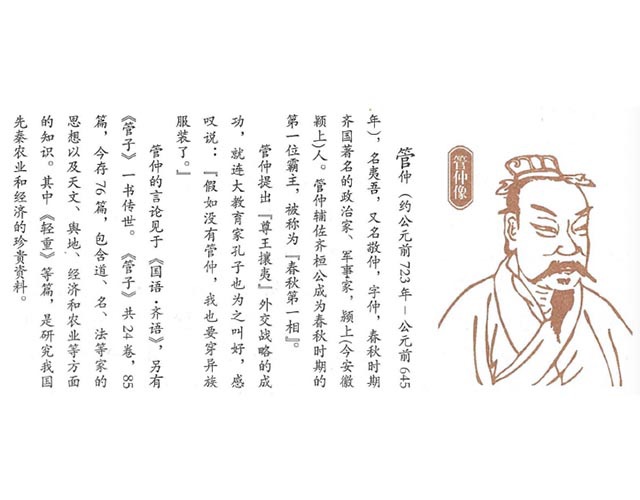 管仲像
管仲（约公元前723年－公元前645
年），名夷吾，又名敬仲，字仲，春秋时期
齐国著名的政治家、军事家，颍上（今安徽
颍上）人。管仲辅佐齐桓公成为春秋时期的
第一位霸主，被称为『春秋第一相』。
管仲提出『尊王攘夷』外交战略的成
功，就连大教育家孔子也为之叫好，感
叹说：『假如没有管仲，我也要穿异族
服装了。』
管仲的言论见于《国语·齐语》，另有
《管子》一书传世。《管子》共24卷，85
篇，今存76篇，包含道、名、法等家的
思想以及天文、舆地、经济和农业等方面
的知识。其中《轻重》等篇，是研究我国
先秦农业和经济的珍贵资料。